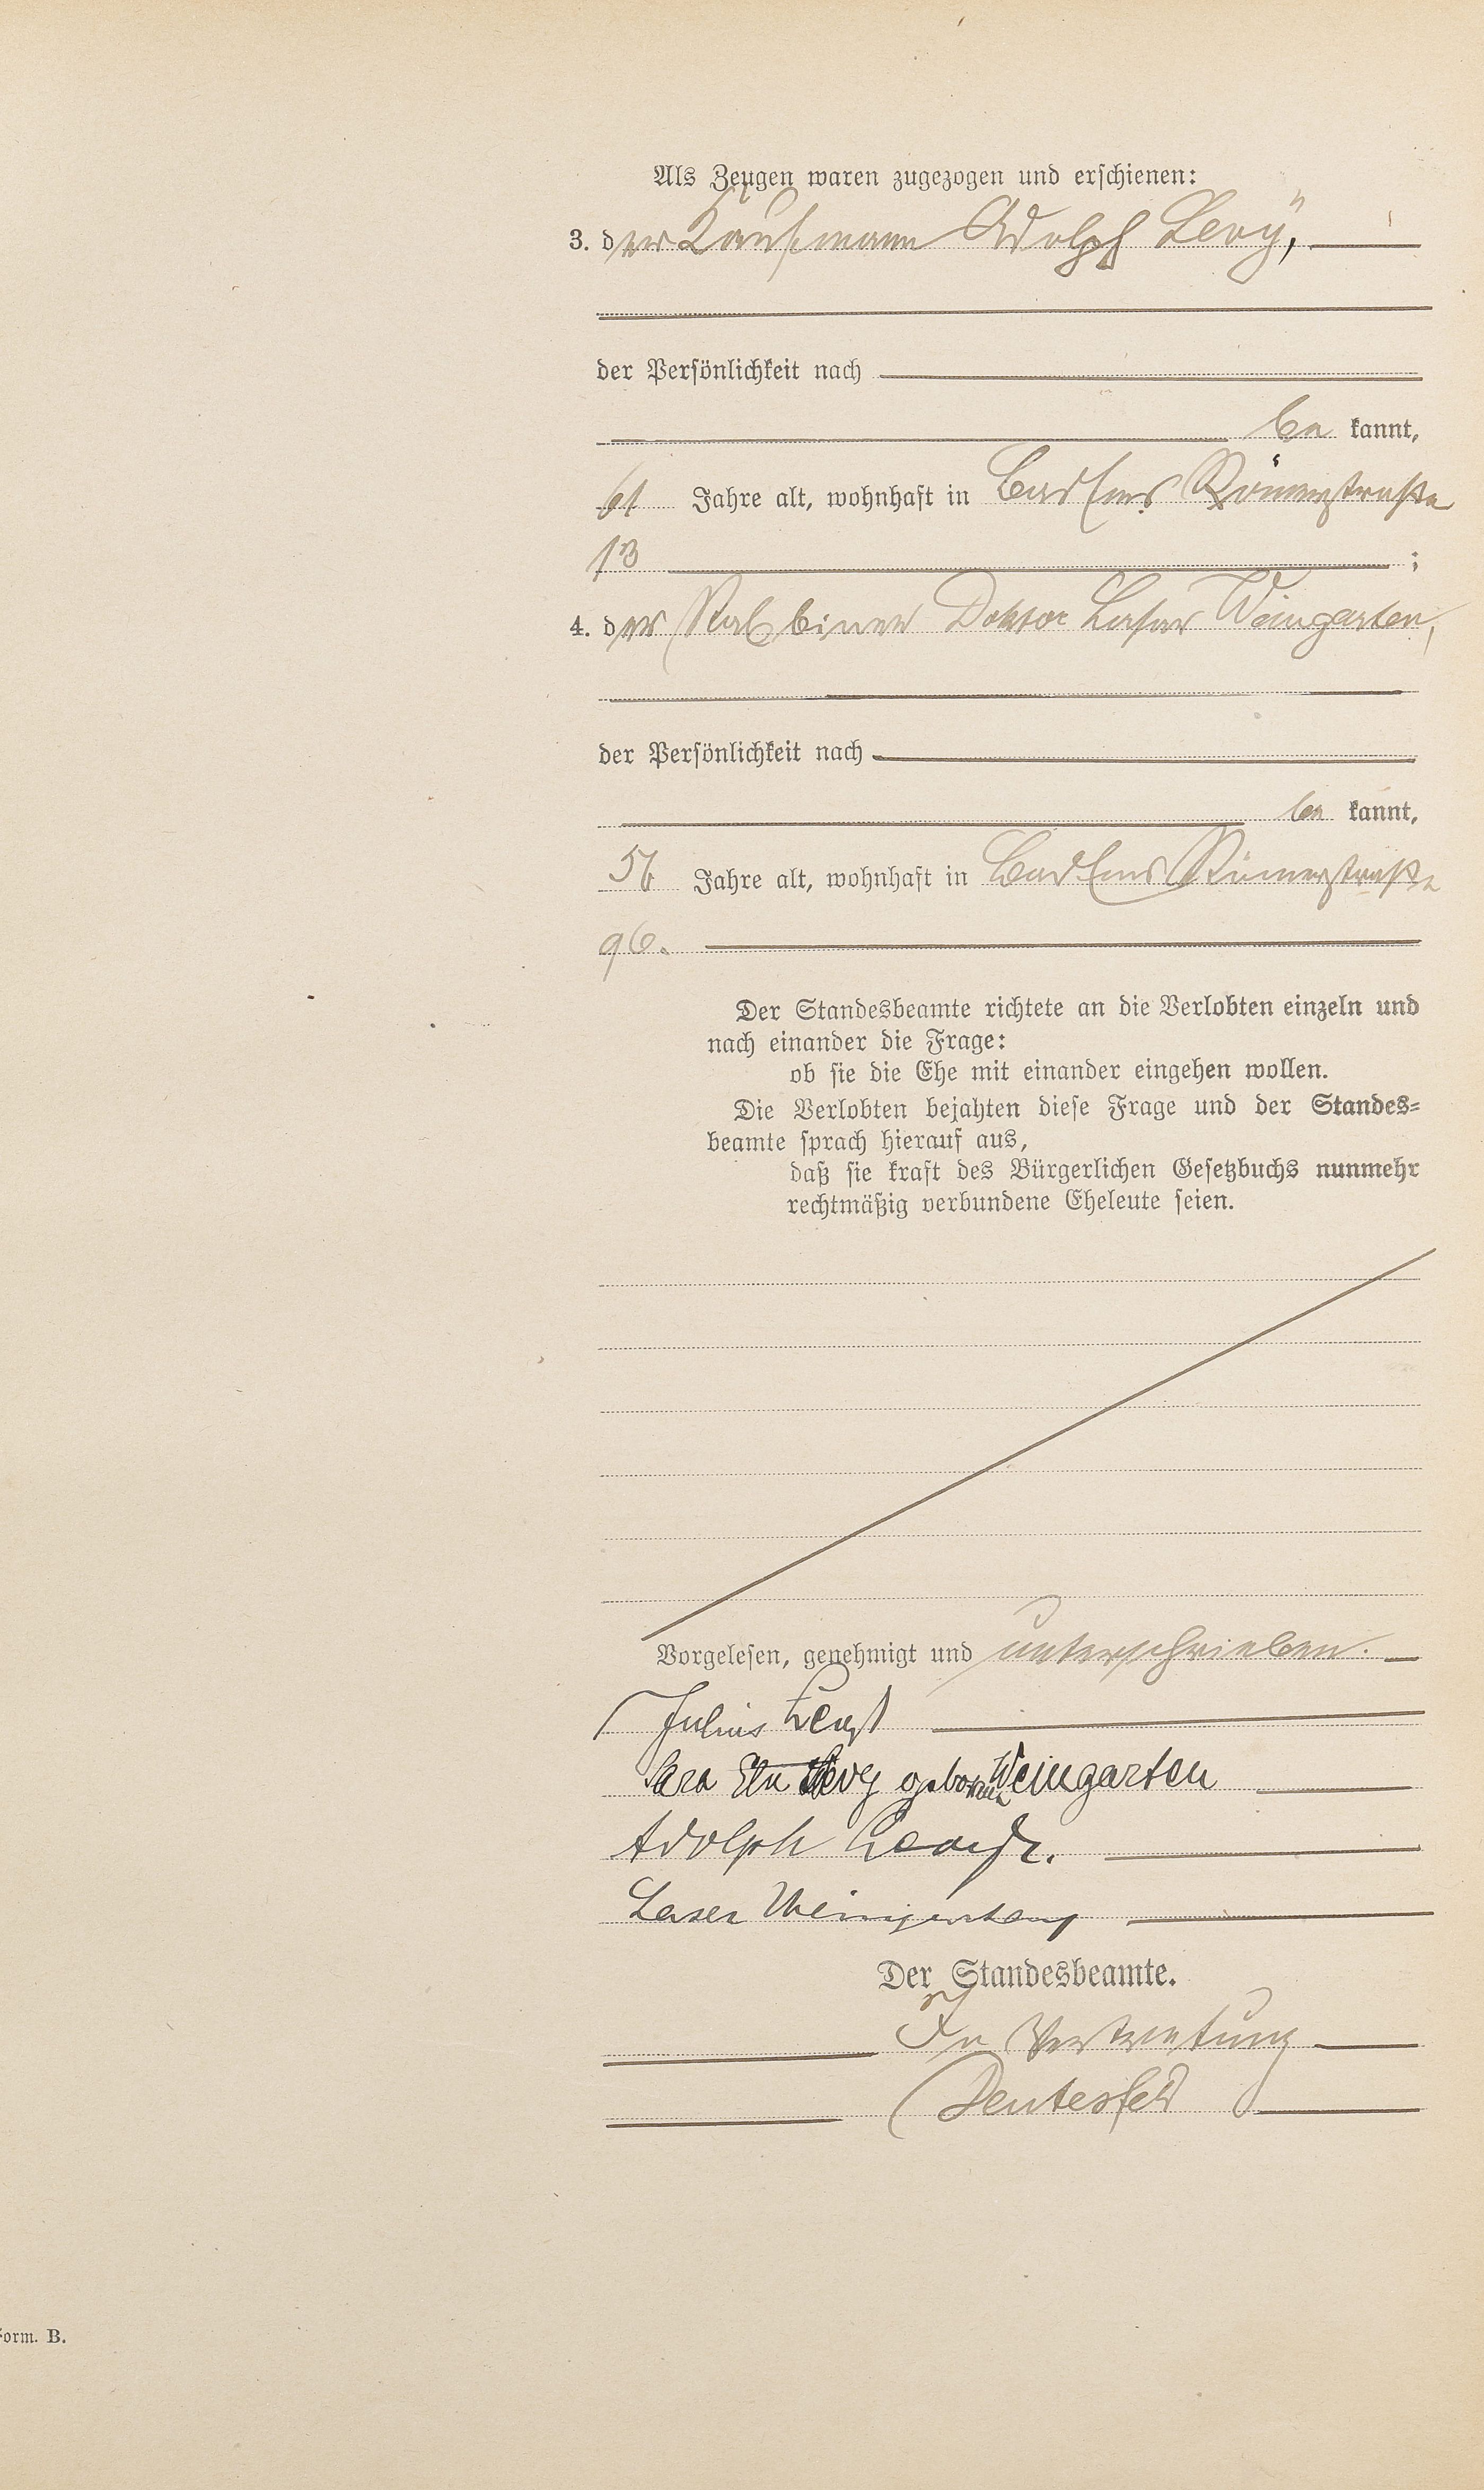 Als Zeugen waren zugezogen und erschienen:
3. der Kaufmann Adolph Levÿ,
der Persönlichkeit nach
be kannt,
61 Jahre alt, wohnhaft in Bad Ems Römerstraße
13 ;
4. der Rabbiner Doktor Laser Weingarten,
der Persönlichkeit nach
be kannt,
56 Jahre alt, wohnhaft in Bad Ems Römerstraße
96.
Der Standesbeamte richtete an die Verlobten einzeln und
nach einander die Frage:
ob sie die Ehe mit einander eingehen wollen.
Die Verlobten bejahten diese Frage und der Standes=
beamte sprach hierauf aus,
daß sie kraft des Bürgerlichen Gesetzbuchs nunmehr
rechtmäßig verbundene Eheleute seien.
Vorgelesen, genehmigt und unterschrieben.
Julius Levy
Sara Levy geborene Weingarten
Adolph Levy
Laser Weingarten
Der Standesbeamte.
In Vertretung
Deutesfeld
Form. B.